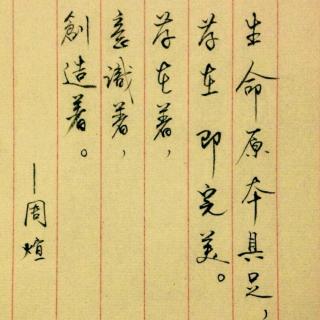 生命原本具足，
存在即完美。
存在着，
意識着，
創造着。
—周煊